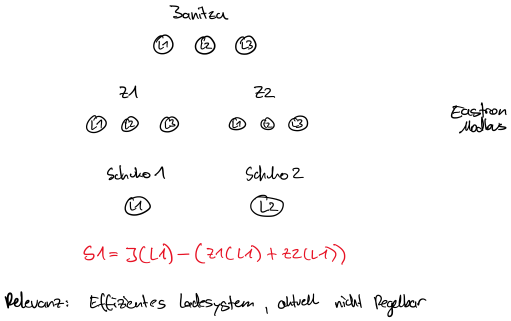 Janitza
L1 L2 L3
Z1 Z2
L1 L2 L3 L1 L2 L3
Eastron
Modbus
Schuko 1 Schuko 2
L1 L2
S1 = J(L1) - (Z1(L1) + Z2(L1))
Relevanz: Effizientes Ladesystem, aktuell nicht Regelbar